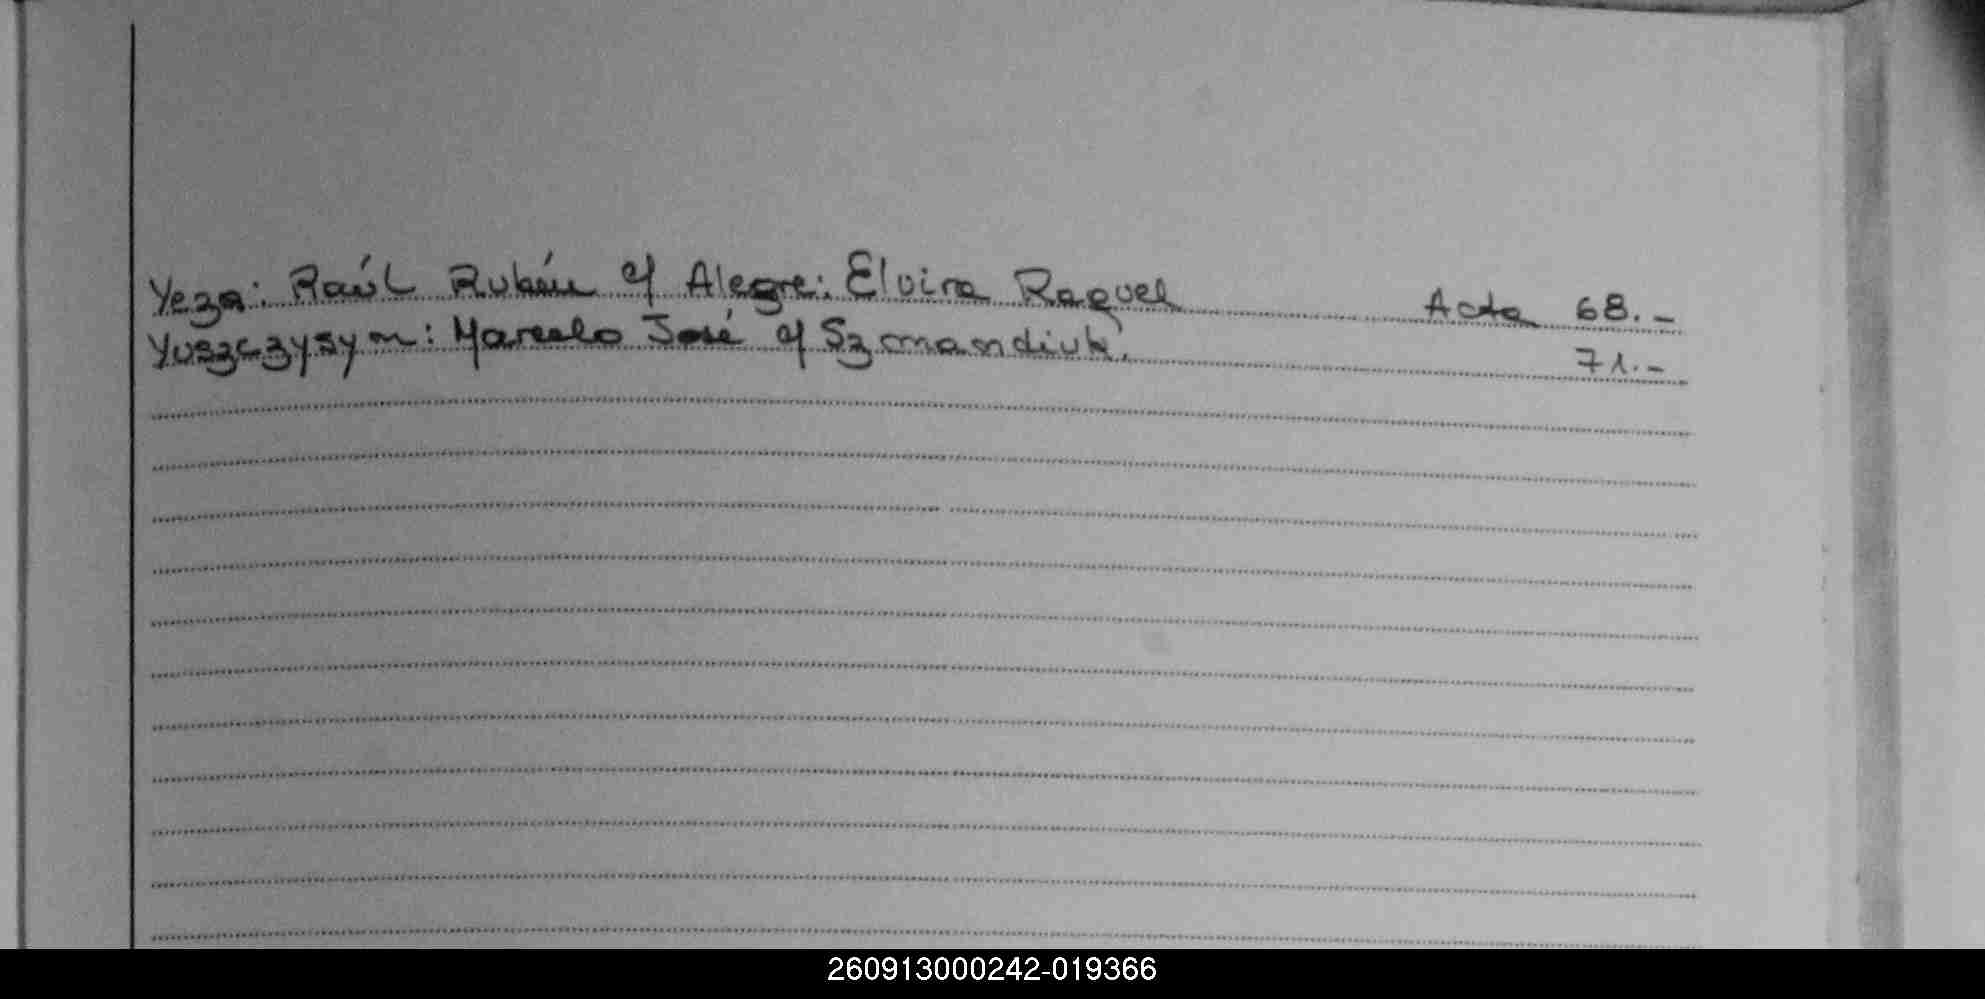 Yeza: Raúl Rubén c/ Alegre: Elvira Raquel Acta 68.-
Yuszczysym: Marcelo José c/ Szmandiuk. 71.-
260913000242-019366